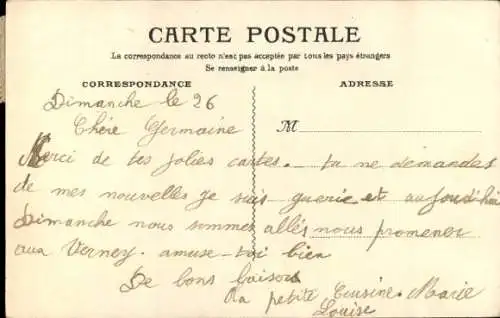 CARTE POSTALE
La correspondance au recto n'est pas acceptée par tous les pays étrangers
Se renseigner à la poste
CORRESPONDANCE
ADRESSE
Dimanche le 26
Chére Germaine
M
Merci de tes jolies cartes. tu ne demandes
de mes nouvelles je suis guerie et aujourd'hui
Dimanche nous sommes allés nous promener
aux Verney. amuse-toi bien
De bons baisers
ta petite Cousine. Marie
Louise